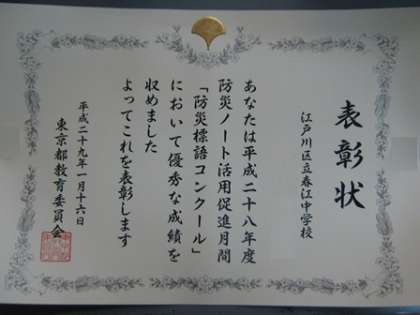 表彰状
江戸川区立春江中学校
あなたは平成二十八年度
防災ノート活用促進月間
「防災標語コンクール」
において優秀な成績を
収めました
よってこれを表彰します
平成二十九年一月十六日
東京都教育委員会